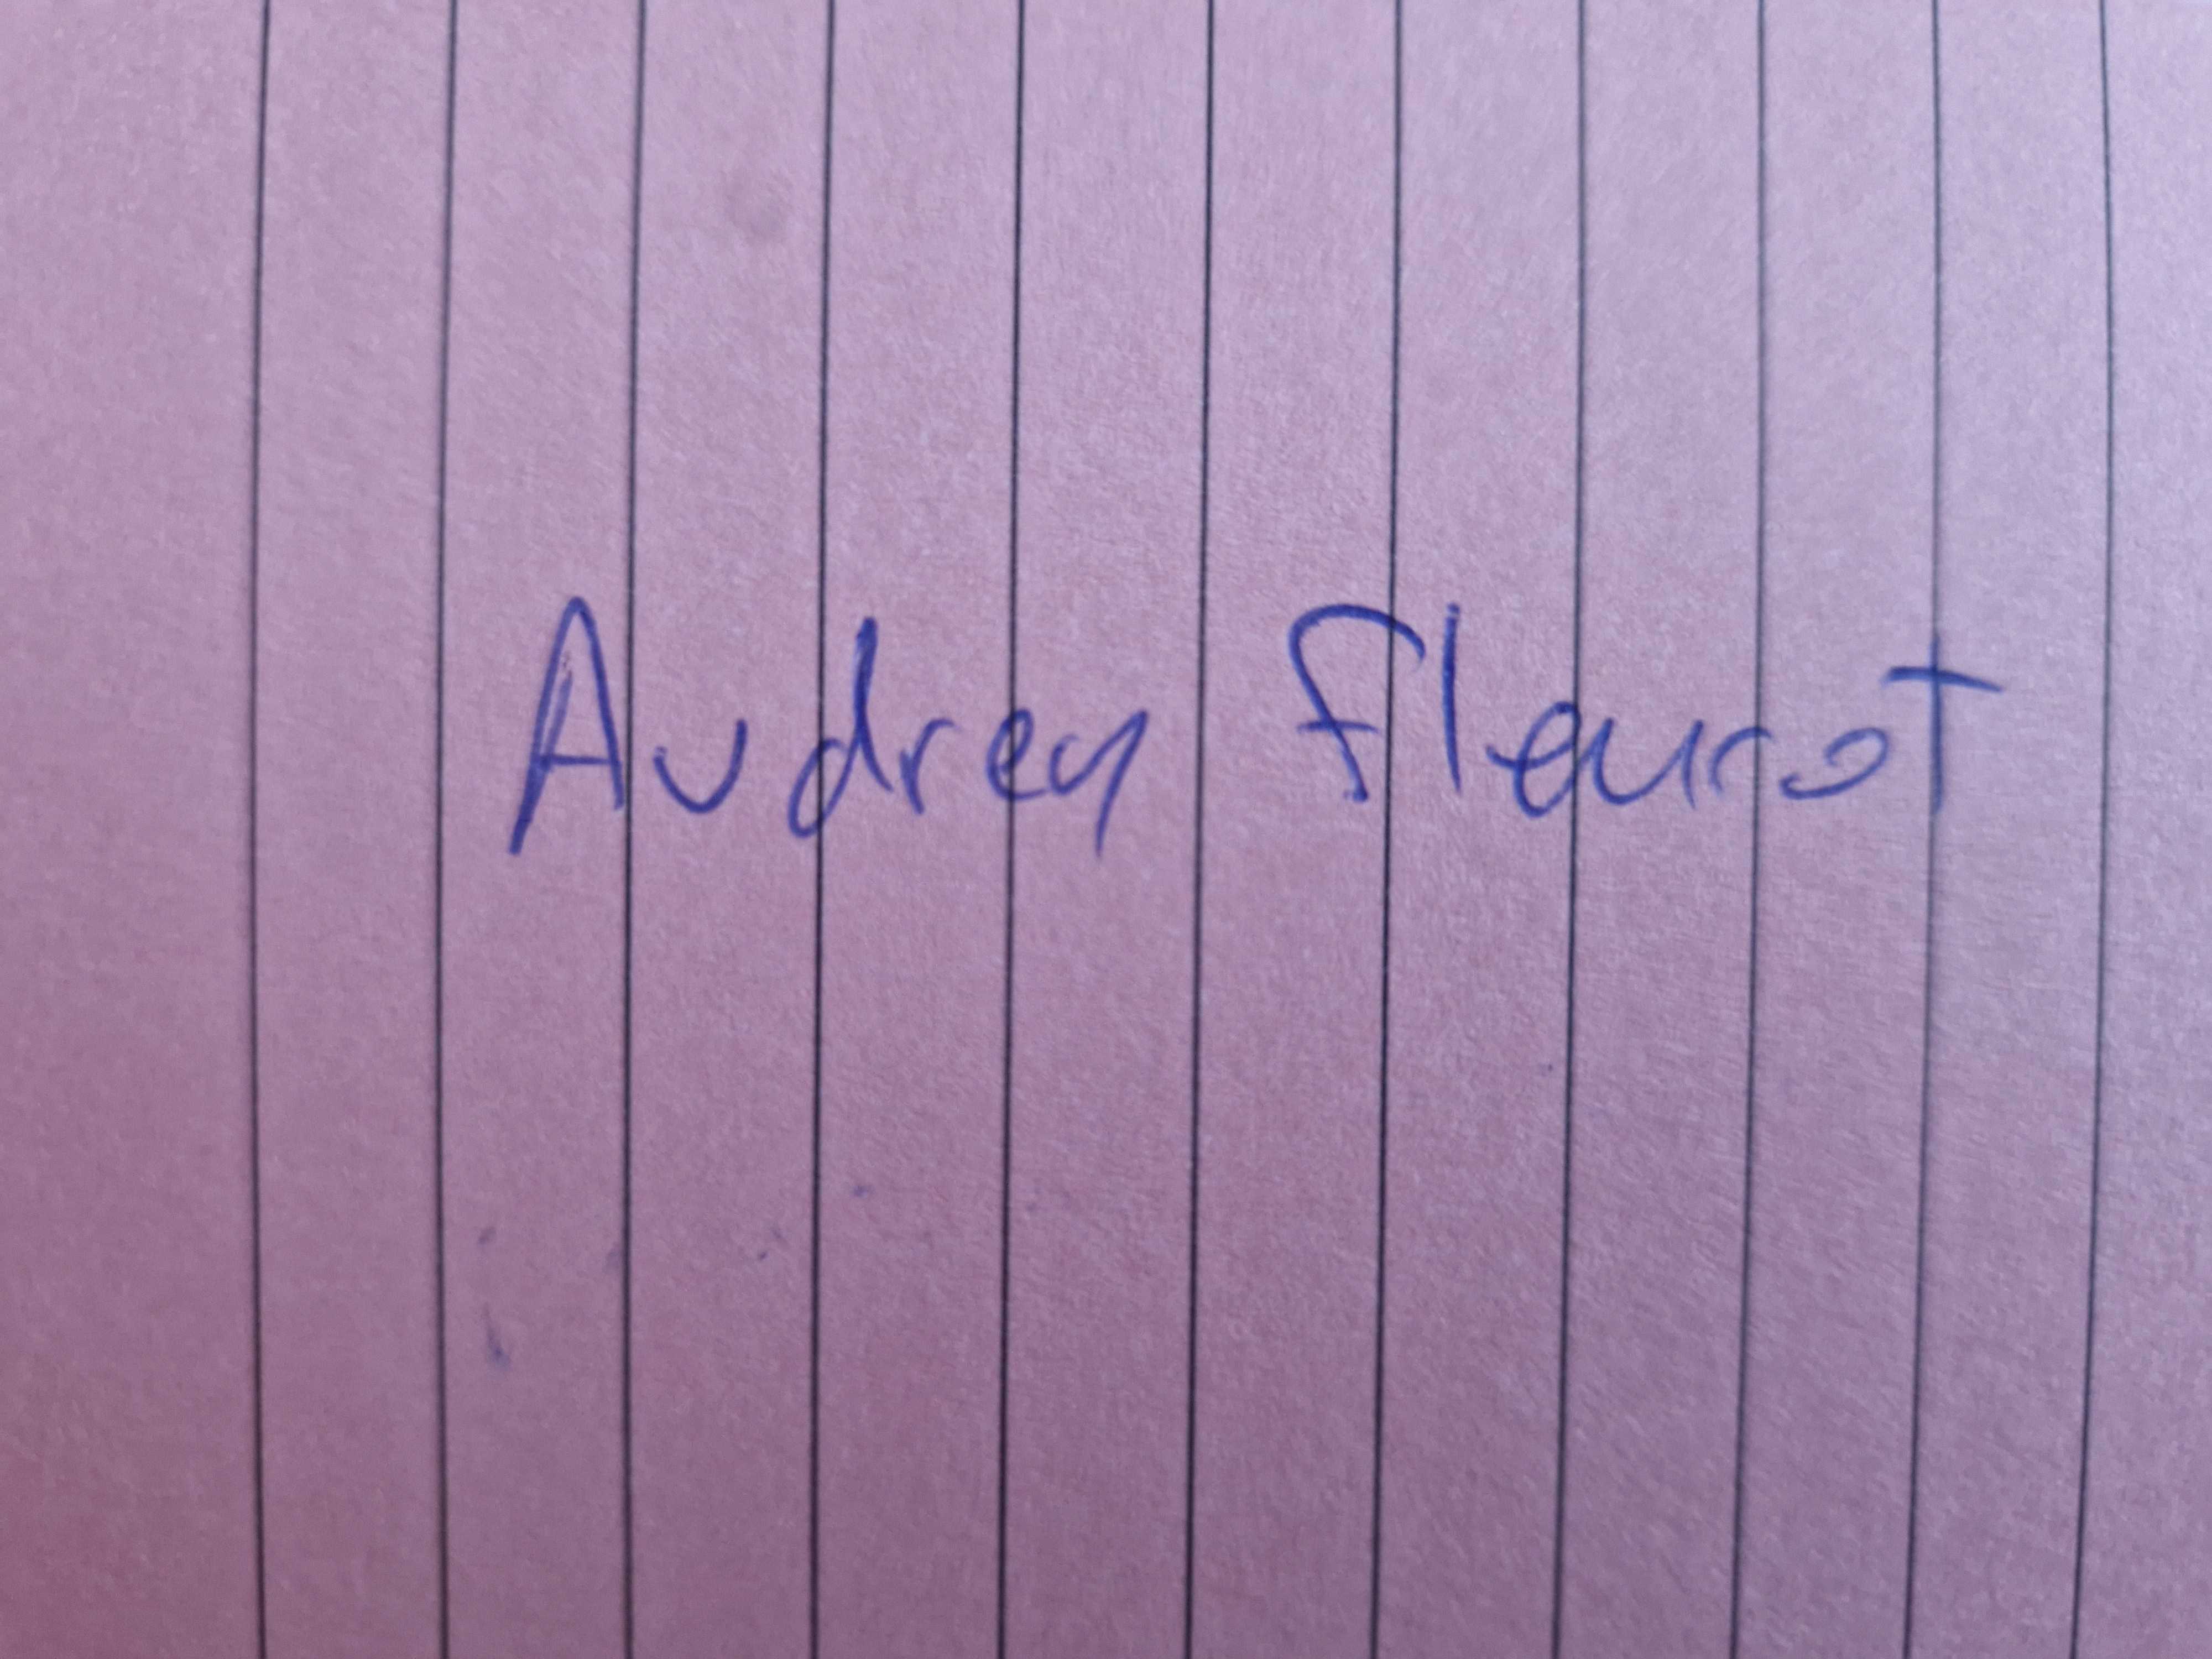 Audrey Fleurot